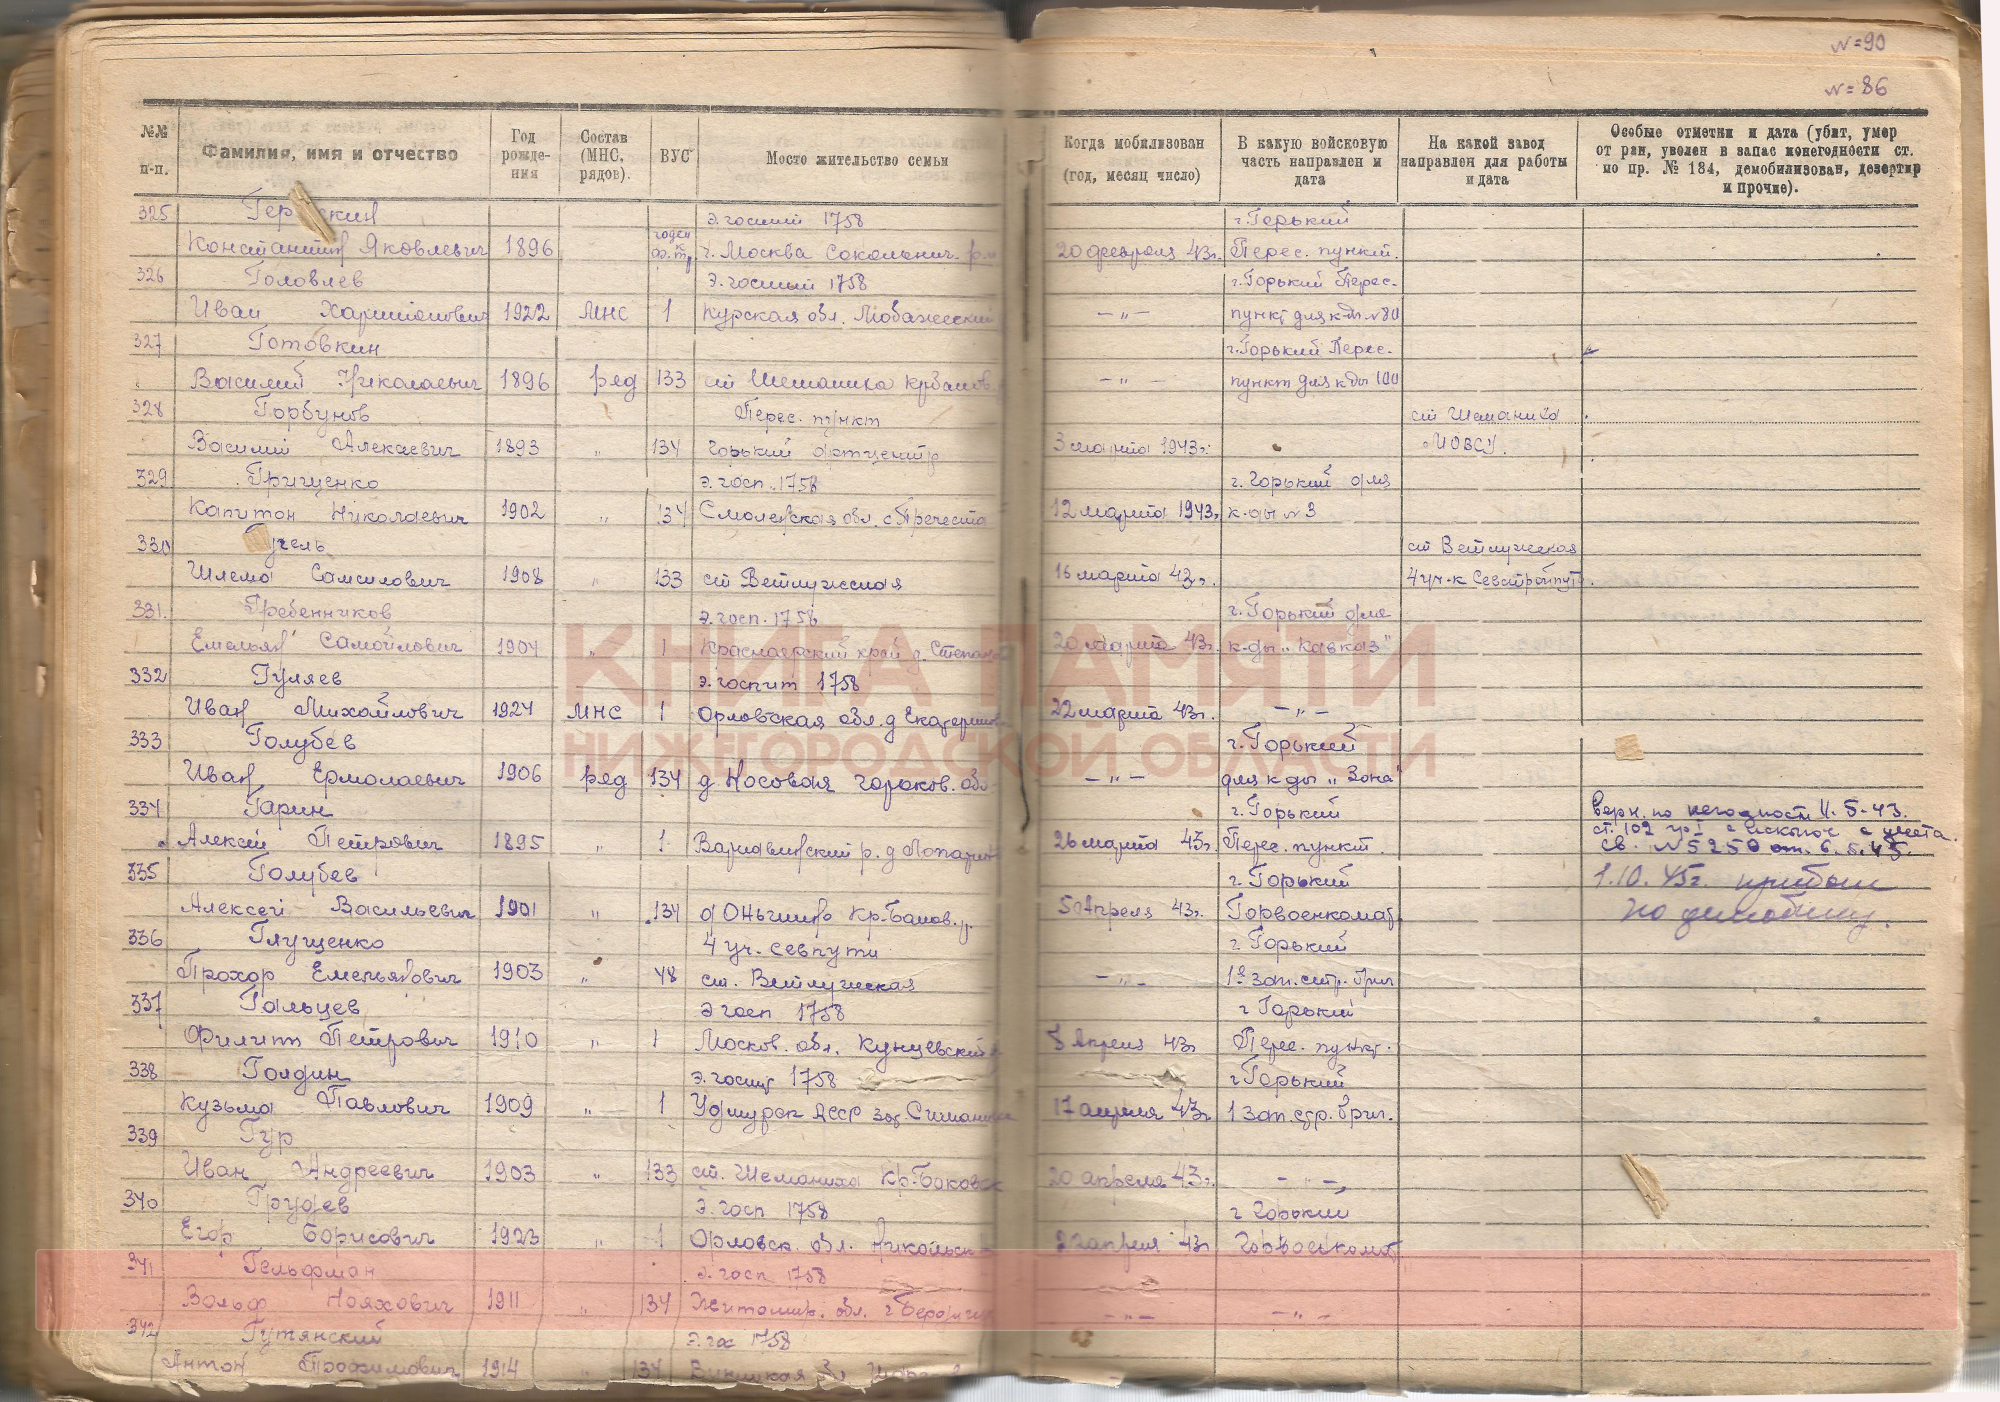 N=90
N=86
№№ п-п.
Фамилия, имя и отчество
Год рожде- ния
Состав (МНС, рядов).
ВУС
Место жительство семьи
Когда мобилизован (год, месяц число)
В какую войсковую часть направлен и дата
На какой завод направлен для работы и дата
Особые отметки и дата (убит, умер от ран, уволен в запас монегодности ст. по пр. № 184, демобилизован, дезертир и прочие).
325 э. госпит 1758 г. Горький
Константин Яковлевич 1896 годен ф.т. г. Москва Сокольнич. 20 февраля 43г. Перес. пункт.
326 Головлев э. госпит 1758 г. Горький Перес.
Иван 1922 МНС 1 Курская обл. — „ — пункт для к-ды N 80
327 Готовкин г. Горький Перес.
Василий Николаевич 1896 ряд 133 ст Шеманиха — „ — пункт для к-ды 100
328 Горбунов Перес. пункт ст Шеманиха
Василий Алексеевич 1893 „ 134 Горький 3 марта 1943г. МОВСУ.
329 Грищенко э. госп. 1758 г. Горький для
Капитон Николаевич 1902 „ 134 Смоленская обл. с Пречиста 12 марта 1943г. к-ды N 3
330 ст Ветлужская
Шлема Самсилович 1908 „ 133 ст Ветлужская 16 марта 43г. 4 уч-к Севстройпут
331. Гребенников э. госп. 1758 г. Горький для
Емельян Самойлович 1904 „ 1 край д. 20 марта 43г. к-ды „Кавказ"
КНИГА ПАМЯТИ
332 Гуляев э. госпит 1758
Иван Михайлович 1924 МНС 1 Орловская обл. д 22 марта 43г. — „ —
333 Голубев г. Горький
НИЖЕГОРОДСКОЙ ОБЛАСТИ
Иван Ермолаевич 1906 ряд 134 д. Носовая горьков. обл — „ — для к-ды „Зона"
334 Гарин г. Горький Верн. по негодност 11.5-43.
Алексей Петрович 1895 „ 1 Варнавинский р. д 26 марта 43г. Перес. пункт. ст. 102 с учета.
св. N 5250 от. 6.5.45.
335 Голубев г. Горький 1.10.45г. прибыл
Алексей Васильевич 1901 „ 134 д 5 Апреля 43г. Горвоенкомат по демобилиз.
336 Глущенко 4 уч. севпути г. Горький
Прохор Емельянович 1903 „ 48 ст. Ветлужская — „ — 1й зап. стр. бриг
337 Гальцев э госп 1758 г Горький
Филипп Петрович 1910 „ 1 Москов. обл. Кунцевский 8 Апреля 43г Перес. пункт.
338 Голдин э. госпит 1758 г Горький
Кузьма Павлович 1909 „ 1 Удмурск АССР 17 апреля 43г. 1 зап. стр. бриг.
339 Гур
Иван Андреевич 1903 „ 133 ст. Шеманиха Кр-Баковск 20 апреля 43г. — „ —
340 Э. госп 1758 г Горький
Егор Борисович 1923 „ 1 Орловск. обл. Никольск 22 апреля 43г Горвоенкомат
341 Гельфман Э. госп 1758
Вольф Нояхович 1911 „ 134 Житомир. обл. г — „ — — „ —
342 Гутянский Э. гос 1758
Антон Трофимович 1914 „ 134